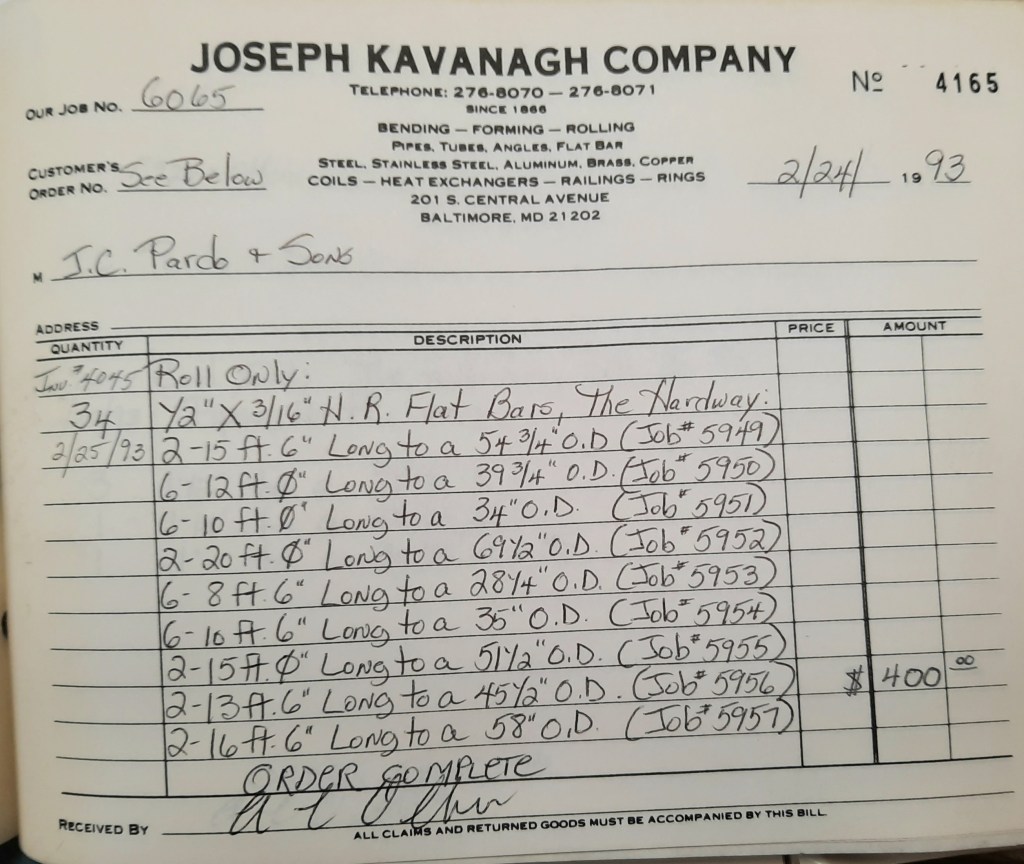 JOSEPH KAVANAGH COMPANY
TELEPHONE: 276-8070 — 276-8071
Nº 4165
OUR JOB NO. 6065
SINCE 1866
BENDING — FORMING — ROLLING
PIPES, TUBES, ANGLES, FLAT BAR
CUSTOMER'S ORDER NO. See Below
STEEL, STAINLESS STEEL, ALUMINUM, BRASS, COPPER
COILS — HEAT EXCHANGERS — RAILINGS — RINGS
2/24/ 1993
201 S. CENTRAL AVENUE
BALTIMORE, MD 21202
M J.C. Pardo + Sons
ADDRESS
QUANTITY DESCRIPTION PRICE AMOUNT
Inv.# 4045 Roll Only:
34 1/2" X 3/16" H.R. Flat Bars, The Hardway:
2/25/93 2-15 ft. 6" Long to a 54 3/4" O.D (Job# 5949)
6-12 ft. Ø" Long to a 39 3/4" O.D. (Job# 5950)
6-10 ft. Ø" Long to a 34" O.D. (Job# 5951)
2-20 ft. Ø" Long to a 69 1/2" O.D. (Job# 5952)
6- 8 ft. 6" Long to a 28 1/4" O.D. (Job# 5953)
6-10 ft. 6" Long to a 35" O.D. (Job# 5954)
2-15 ft. Ø" Long to a 51 1/2" O.D. (Job# 5955)
2-13 ft. 6" Long to a 45 1/2" O.D. (Job# 5956) $ 400 00
2-16 ft. 6" Long to a 58" O.D. (Job# 5957)
ORDER COMPLETE
RECEIVED BY
ALL CLAIMS AND RETURNED GOODS MUST BE ACCOMPANIED BY THIS BILL